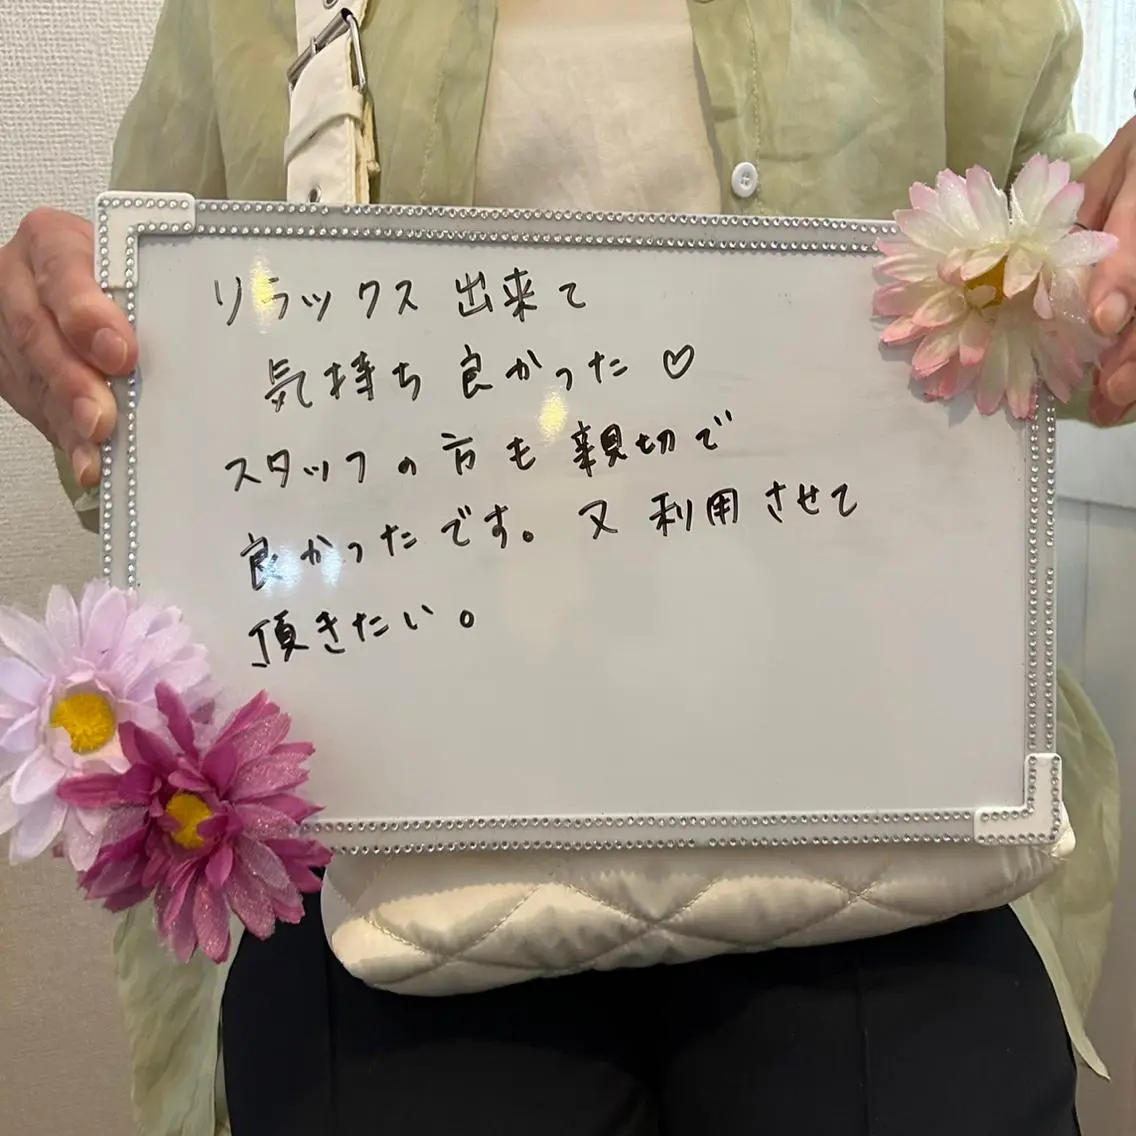 リラックス出来て
気持ち良かった♡
スタッフの方も親切で
良かったです。又利用させて
頂きたい。